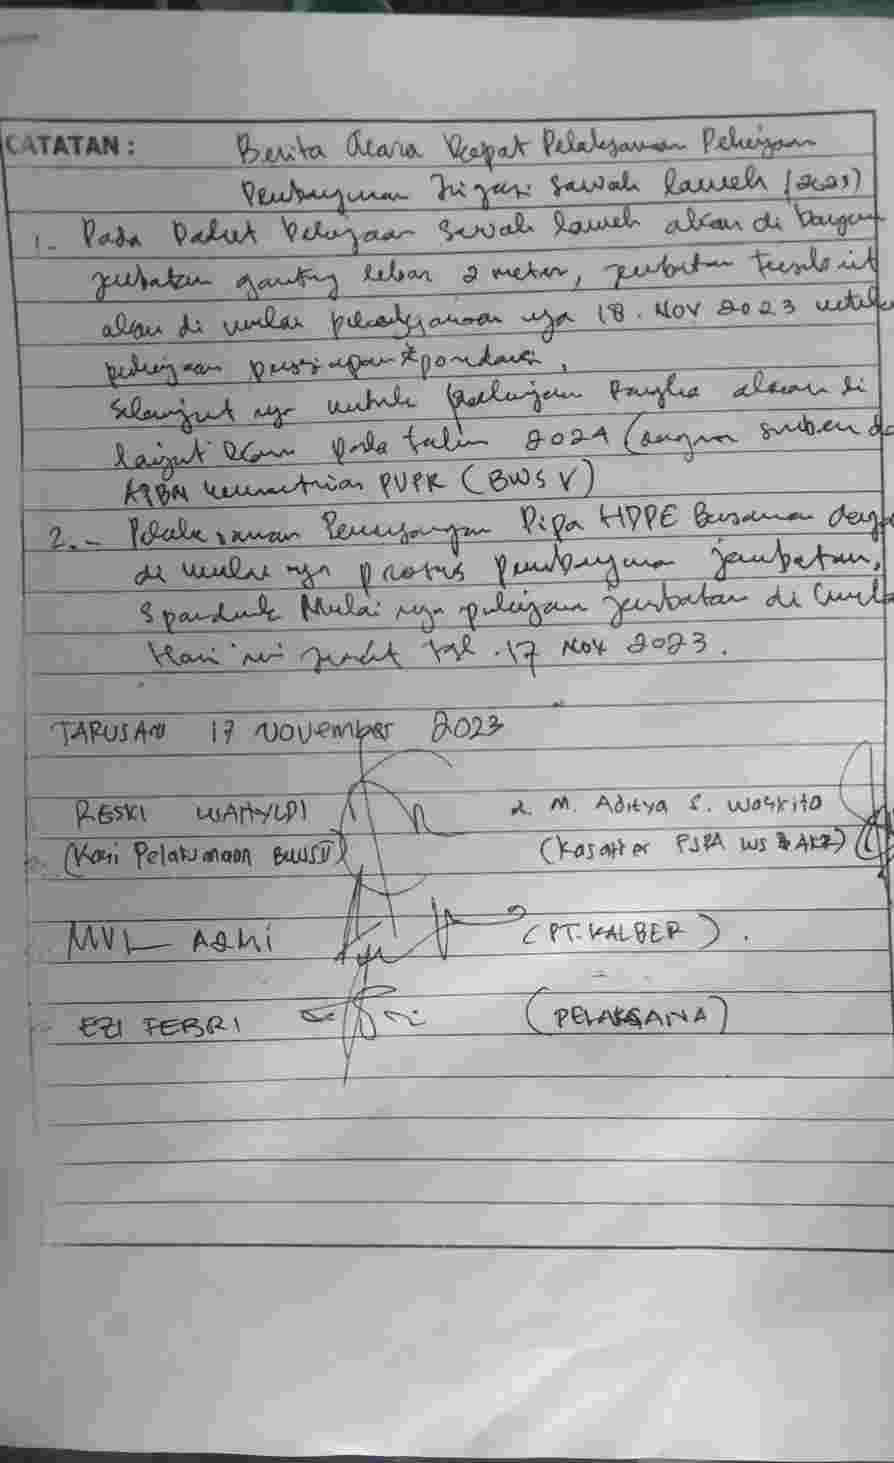 CATATAN : Berita Acara Rapat Pelaksanaan Pekerjaan
Pembangunan Irigasi Sawah Laweh (2023)
1. Pada Paket Pekerjaan Sawah Laweh akan di bangun
jembatan gantung lebar 2 meter, jembatan tersebut
akan di mulai pelaksanaan nya 18. Nov 2023 untuk
pekerjaan persiapan pondasi,
Selanjut nya untuk pekerjaan rangka akan di
lanjut kan pada tahun 2024 (dengan sumber
APBN Kementrian PUPR (BWS V)
2. - Pelaksanaan Pemasangan Pipa HDPE Bersamaan
di mulai nya proses pembangunan jembatan,
Spanduk Mulai nya pekerjaan jembatan di
Hari ini jum'at tgl. 17 Nov 2023.
TARUSAN 17 November 2023
RESKI WAHYUDI 2. M. Aditya S. Waskito
(Kasi Pelaksanaan BWSV) (Kasatker PJPA WS AKR)
MUL AZMI (PT. KALBER).
EZI FEBRI (PELAKSANA)